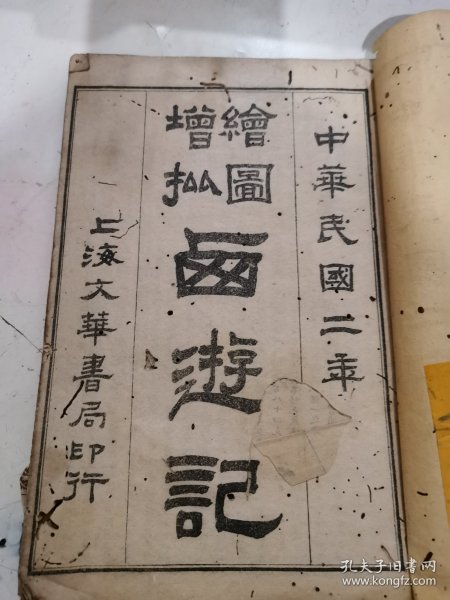 中華民國二年
繪圖
增批
西遊記
上海文華書局印行
孔夫子旧书网
www.kongfz.com